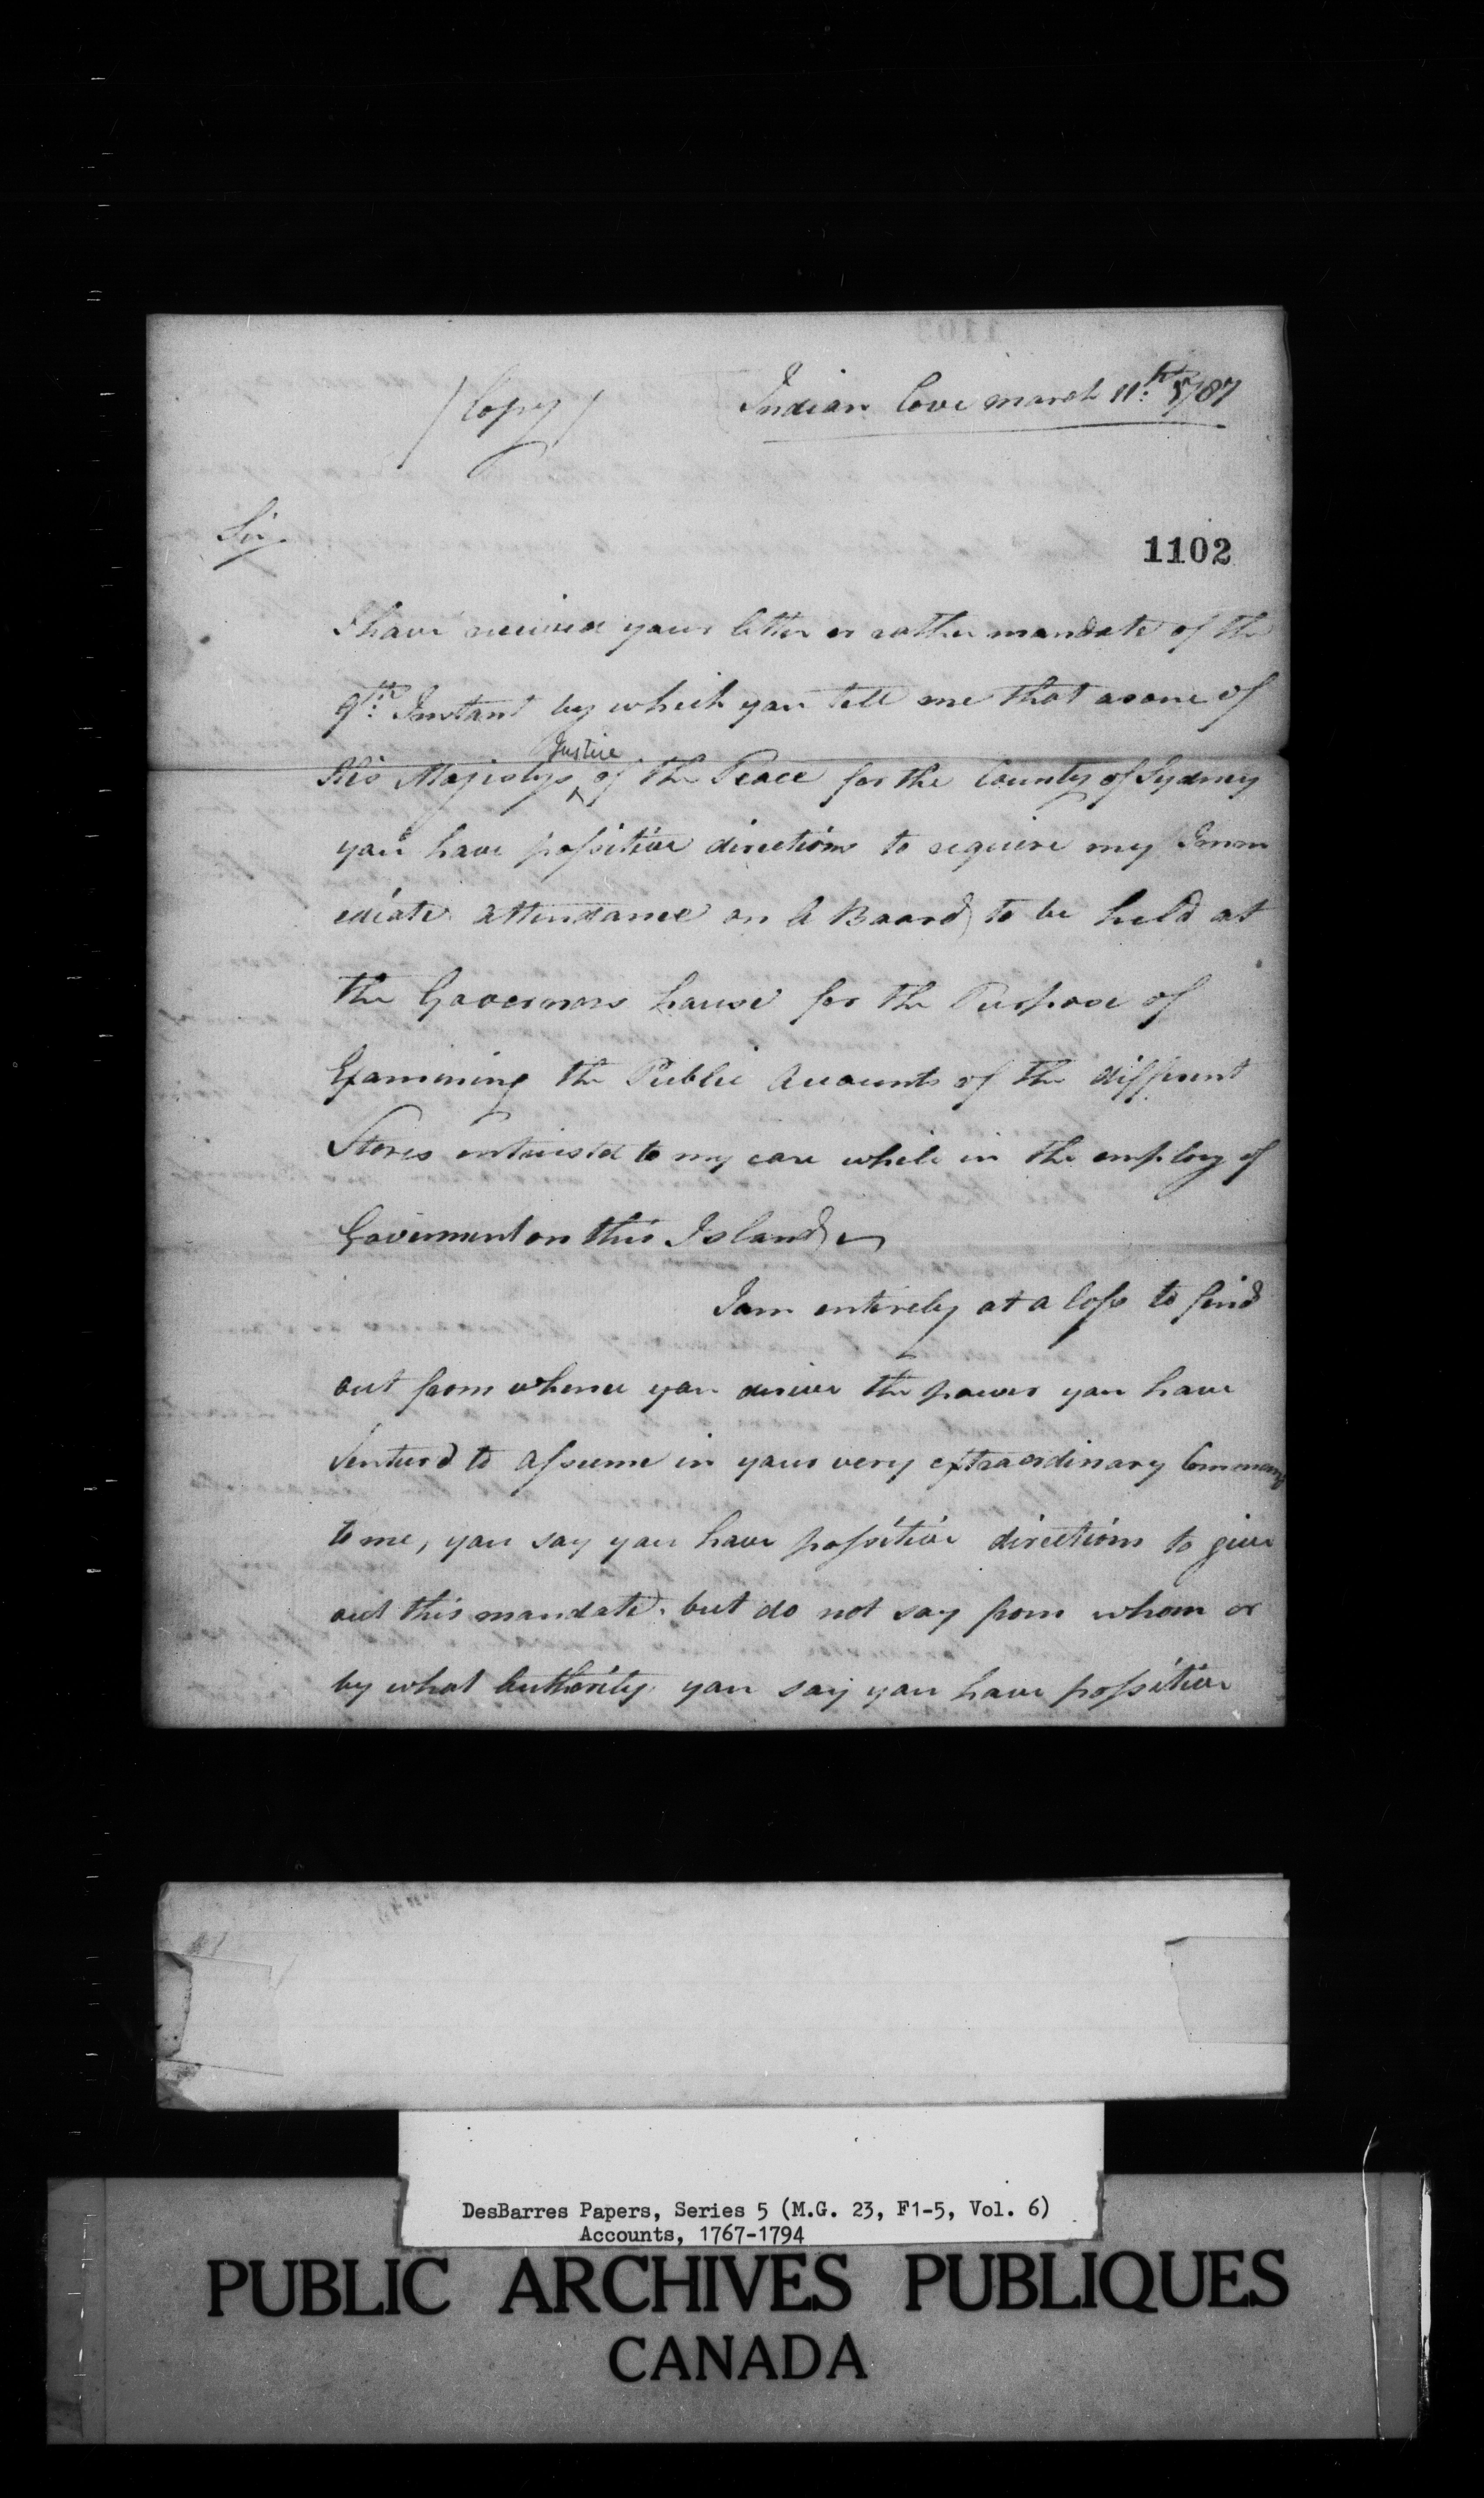 /Copy/
Indian Cove march 11:th 1787
Sir
1102
I have received your letter or rather mandate of the
9:th Instant by which you tell me that as one of
His Majestys Justice of the Peace for the County of Sydney
you have possitive directions to require my Imm
ediate attendance on A Board to be held at
the Governors house for the Purpose of
Examining the Public Accounts of the different
Stores entrusted to my care while in the employ of
Goverment on this Island
I am entirely at a loss to find
out from whence you derive the power you have
Ventur'd to assume in your very extraordinary
to me, you say you have possitive directions to give
out this mandate. but do not say from whom or
by what Authority you say you have possitive
DesBarres Papers, Series 5 (M.G. 23, F1-5, Vol. 6)
Accounts, 1767-1794
PUBLIC ARCHIVES PUBLIQUES
CANADA